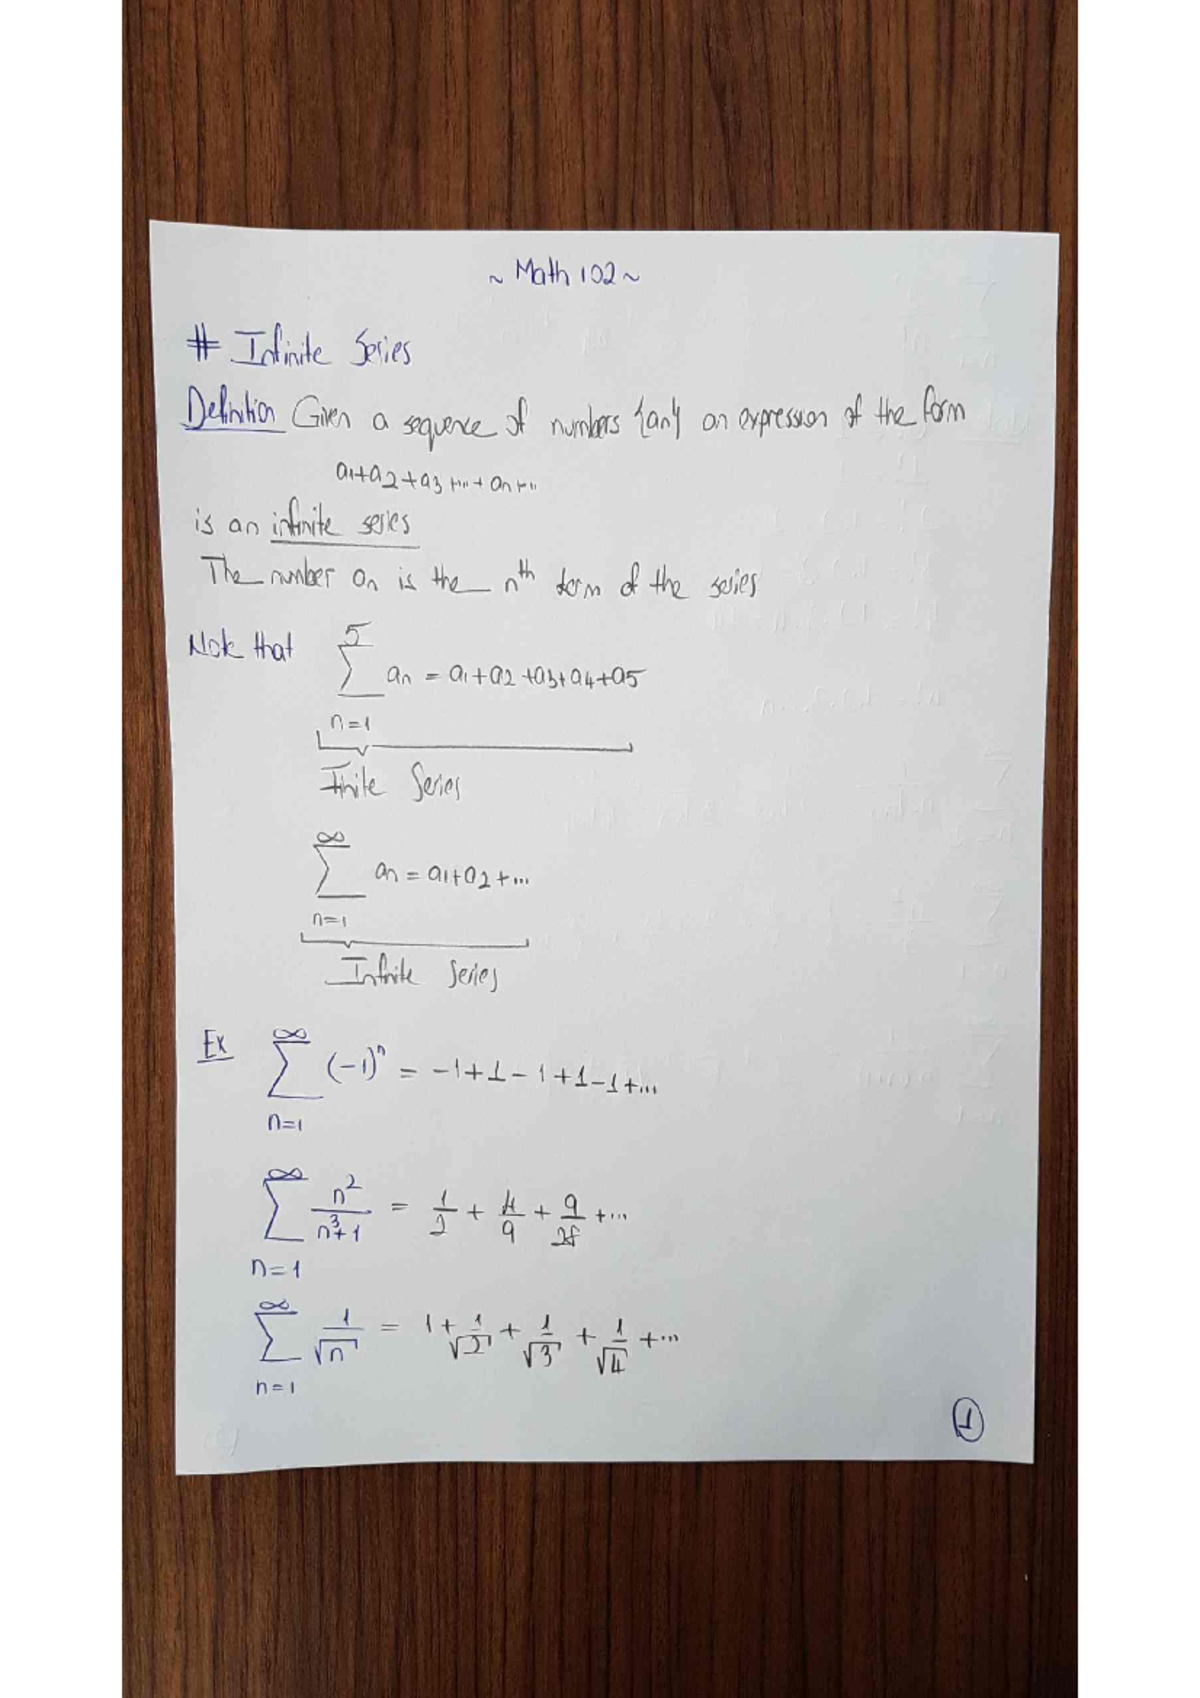 ~ Math 102 ~
# Infinite Series
Definition Given a sequence of numbers {an} an expression of the form
a1+a2+a3+...+an+...
is an infinite series
The number an is the nth term of the series
Note that 5∑n=1 an = a1+a2+a3+a4+a5
Finite Series
∞∑n=1 an = a1+a2+...
Infinite Series
Ex ∞∑n=1 (-1)^n = -1+1-1+1-1+...
∞∑n=1 n²/(n³+1) = 1/2 + 4/9 + 9/28 + ...
∞∑n=1 1/√n = 1 + 1/√2 + 1/√3 + 1/√4 + ...
1